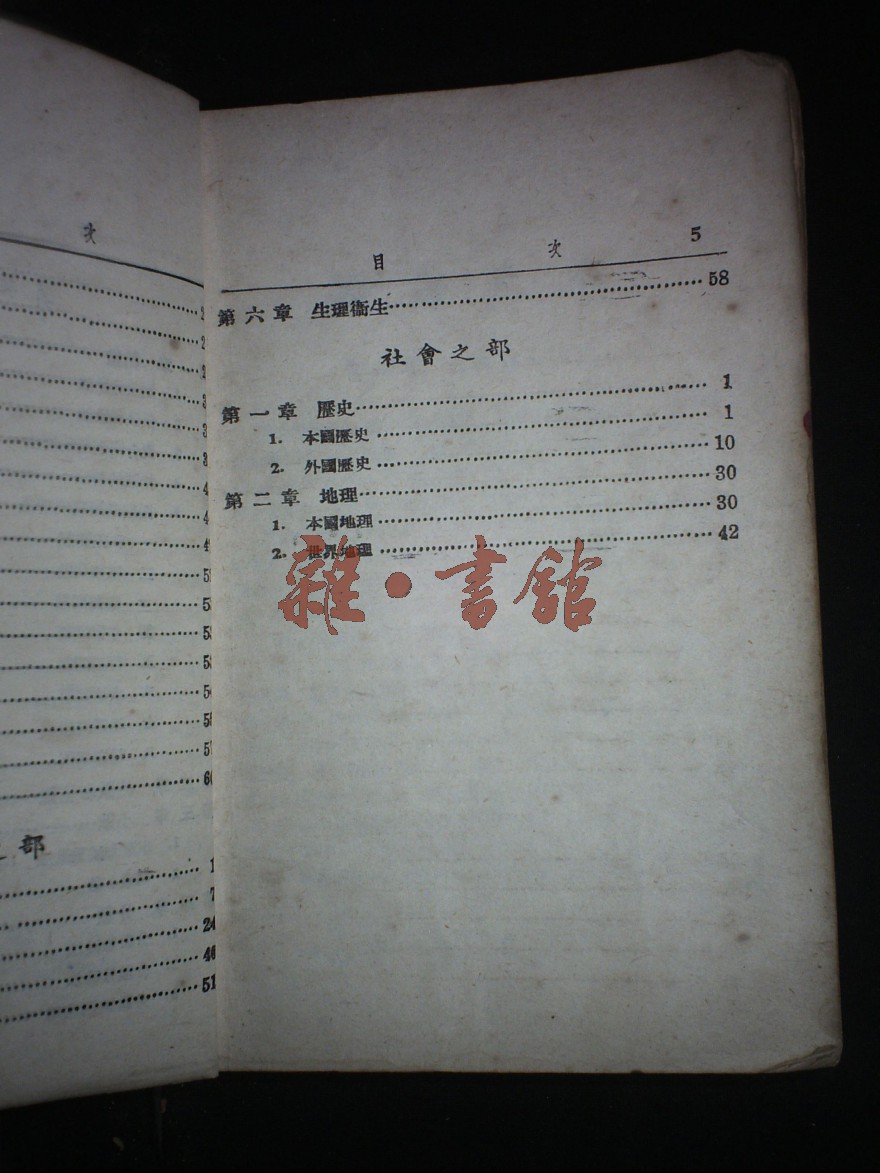 次
部
1
7
24
46
51
目 次 5
第六章 生理衞生 58
社會之部
第一章 歷史 1
1. 本國歷史 1
2. 外國歷史 10
第二章 地理 30
1. 本國地理 30
2. 世界地理 42
雜·書館